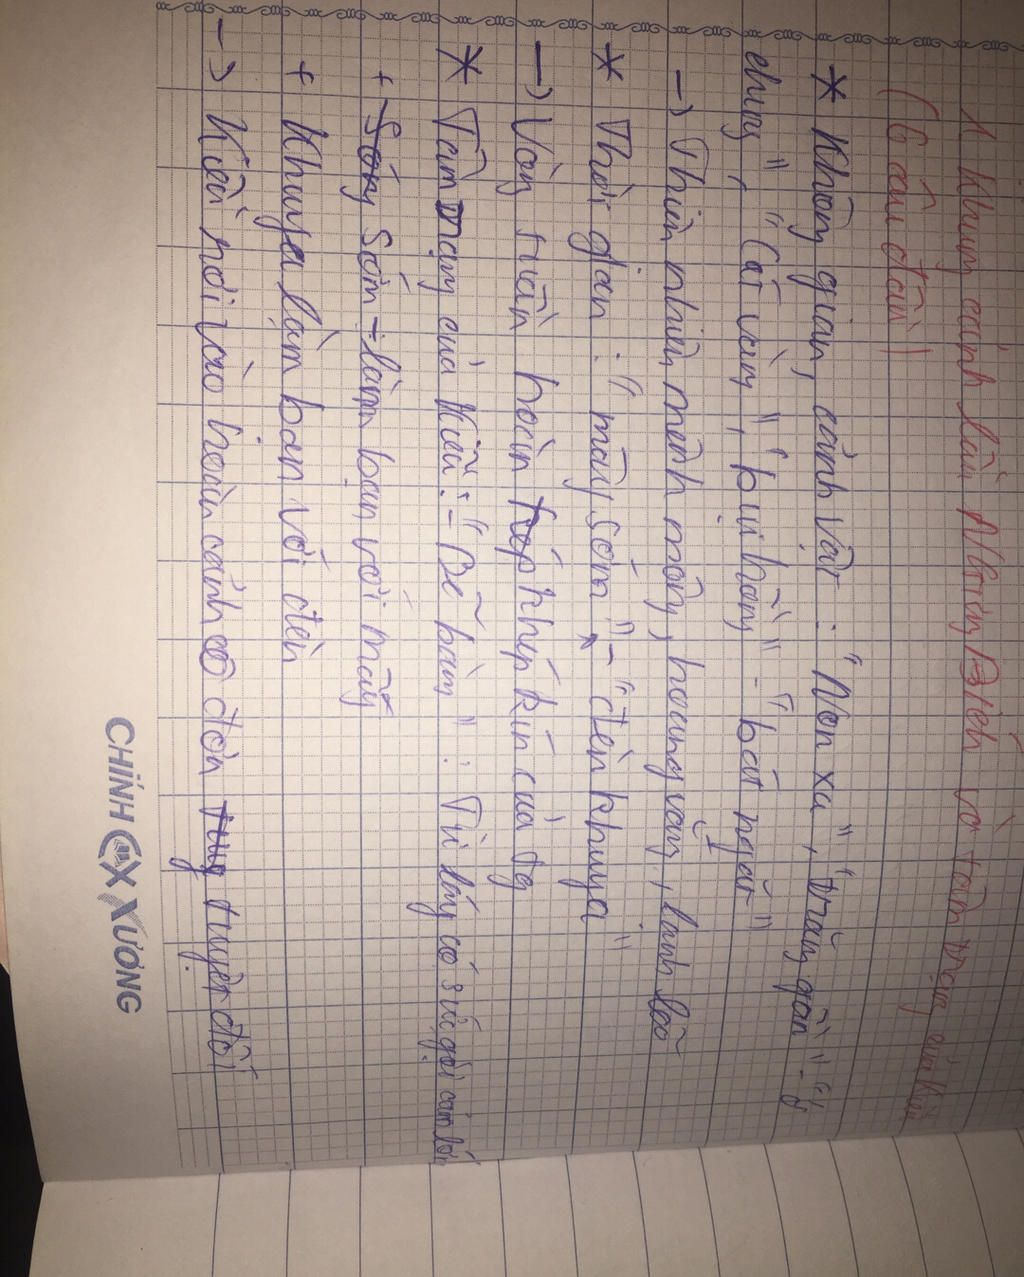 1. Khung cảnh lầu Ngưng Bích và tâm trạng của Kiều
(6 câu đầu)
* Không gian, cảnh vật : "Non xa", "trăng gần" - "ở
chung", "Cát vàng", "bụi hồng" - "bát ngát"
-> Thiên nhiên mênh mông, hoang vắng, lạnh lẽo
* Thời gian : "mây sớm" - "đèn khuya"
-> Vòng tuần hoàn khép kín của tg
* Tâm trạng của Kiều : - "Bẽ bàng" : Từ láy có sức gợi cảm lớn
+ Sớm - làm bạn với mây
+ Khuya làm bạn với đèn
-> Kiều rơi vào hoàn cảnh cô đơn tuyệt đối
CHÍNH XƯƠNG